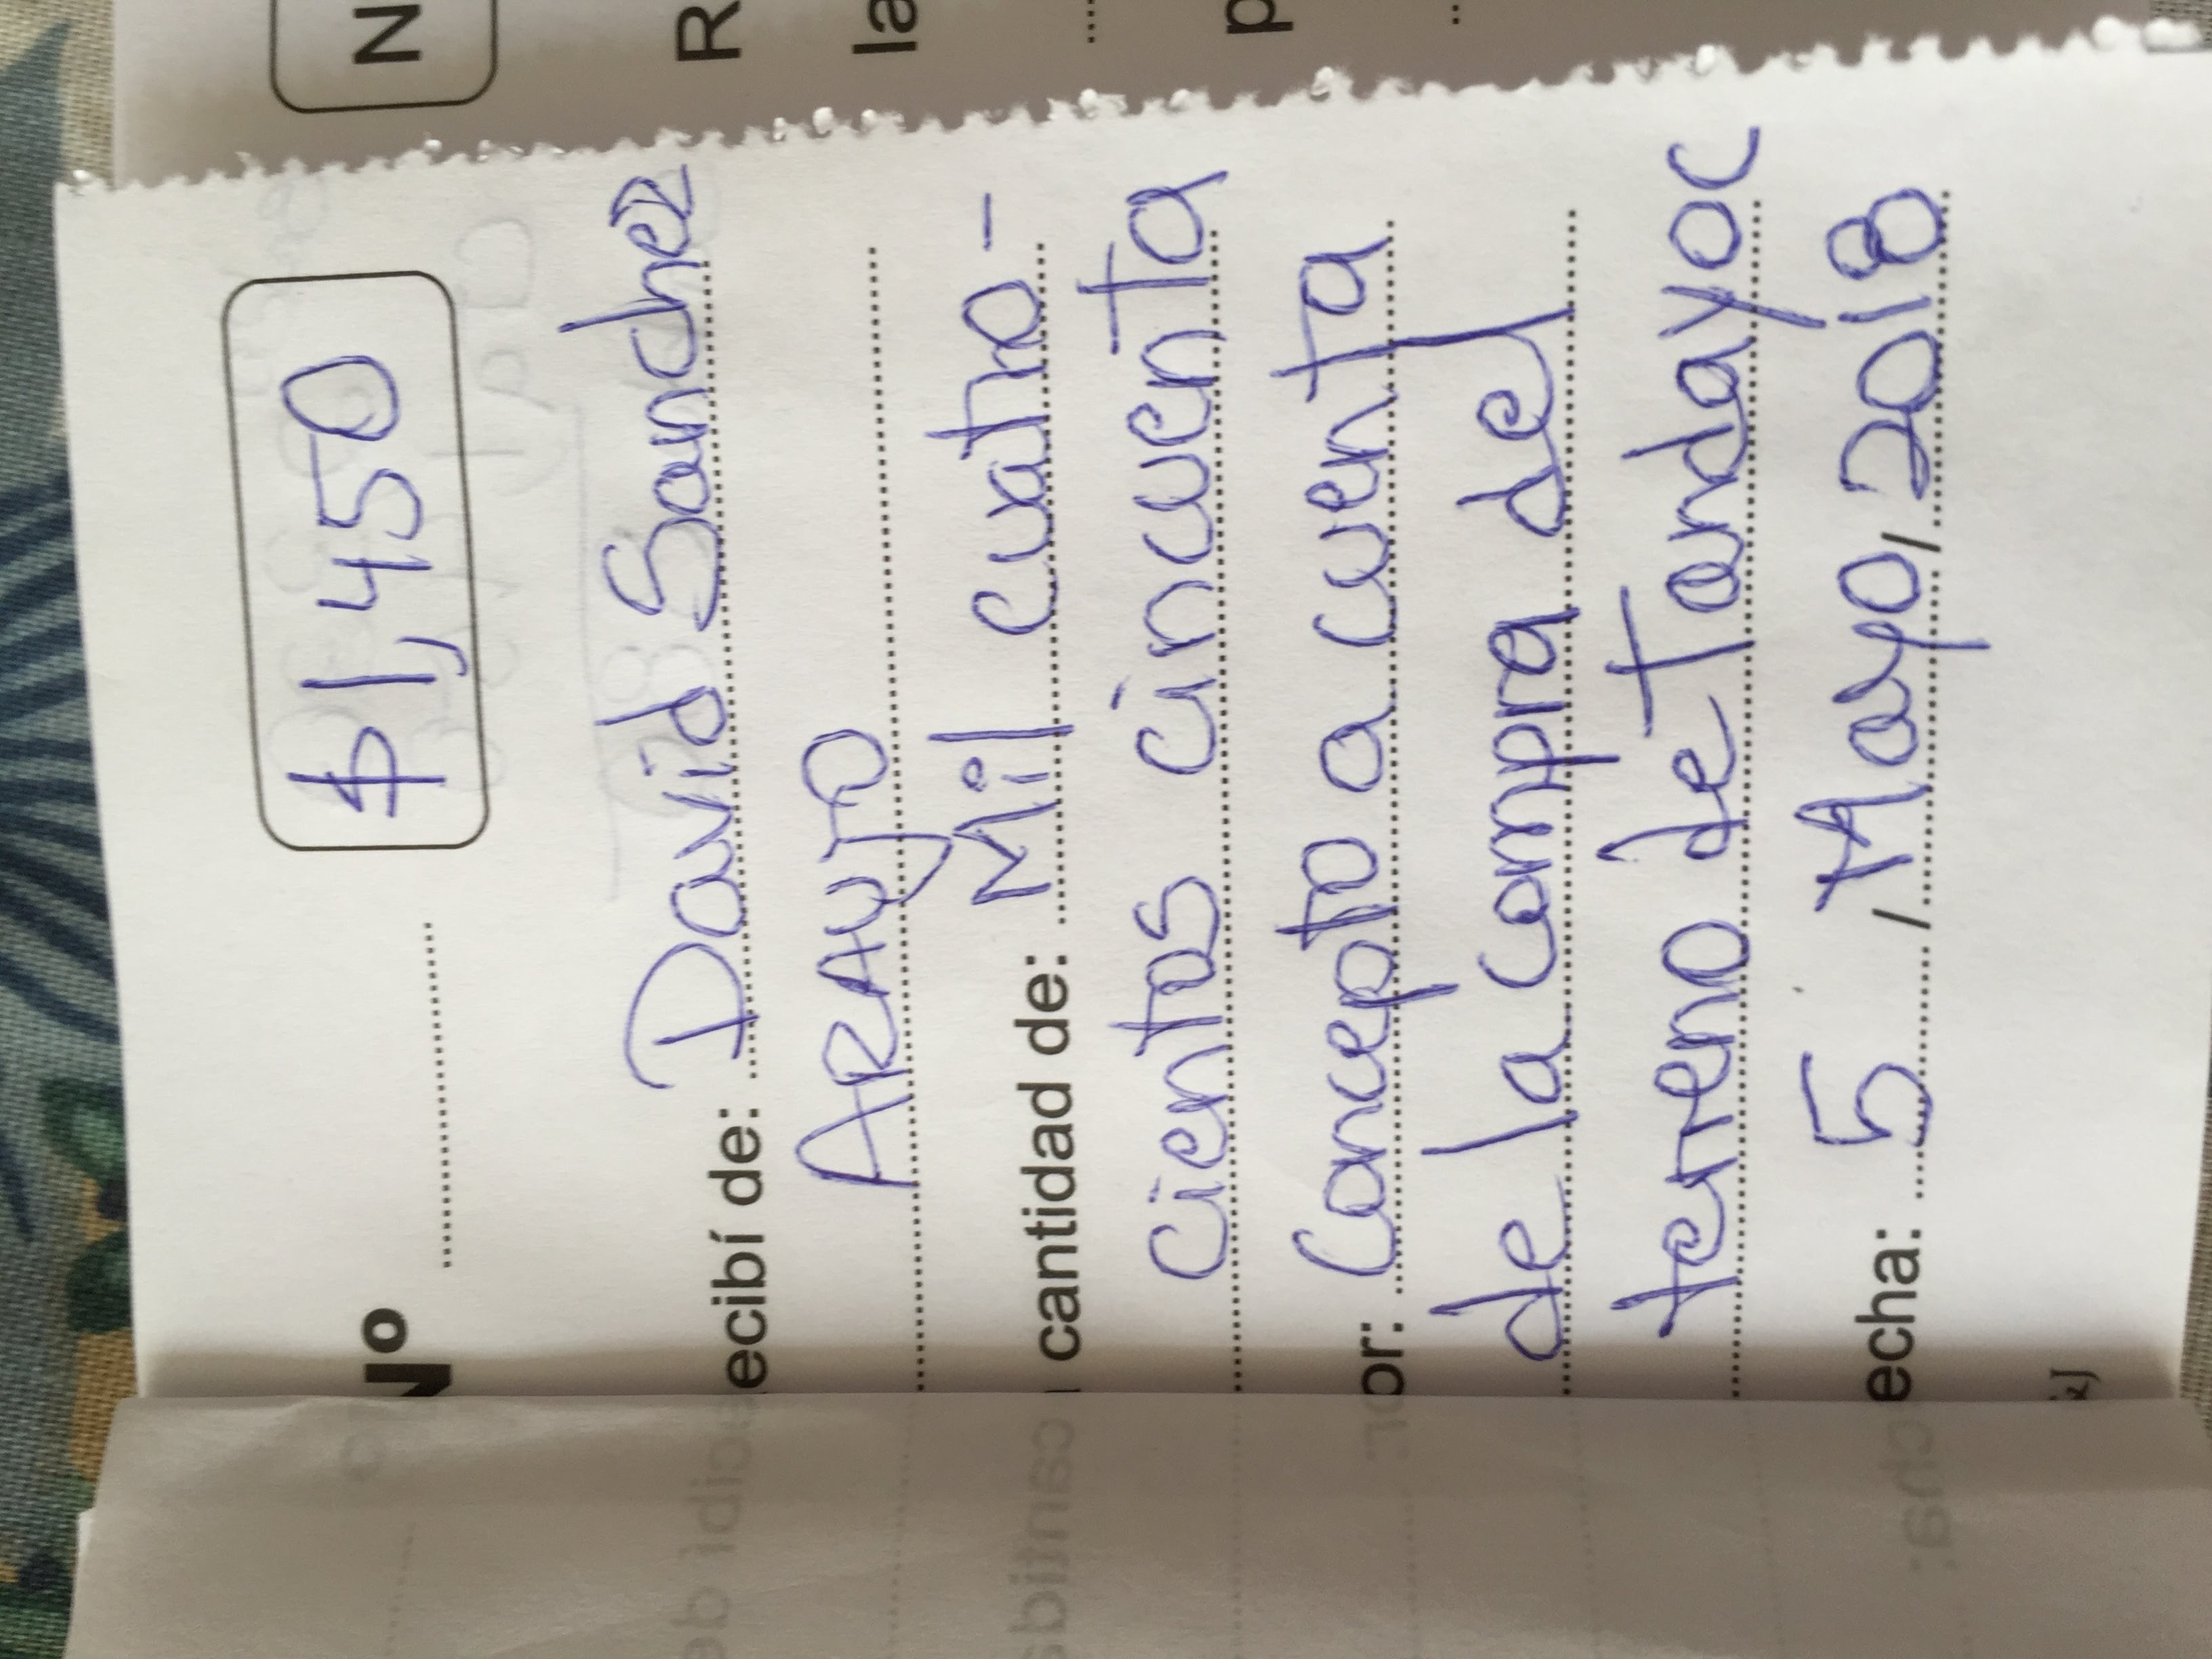 No ........ $1,450
ecibí de: David Sanchez
ARAUJO
cantidad de: Mil cuatro-
cientos cincuenta
or: Concepto a cuenta
de la compra del
terreno de Tandayoc
echa: 5 / Mayo / 2018
N
R
la
p